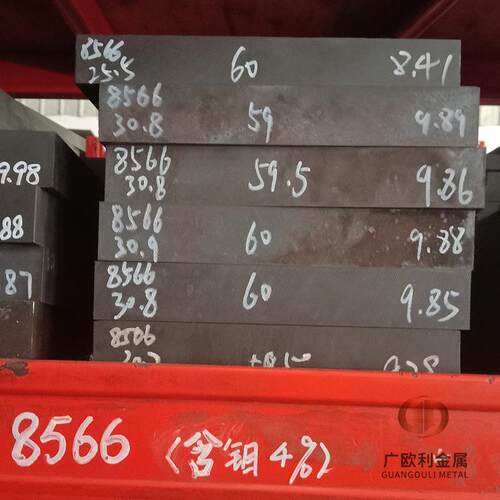 8566 60 8.41
25.5
8566 59 9.89
30.8
8566 59.5 9.86
30.8
8566 60 9.88
30.9
8566 60 9.85
30.8
9.98
88
.87
8566 (含钼4%)
广欧利金属
GUANGOULI METAL